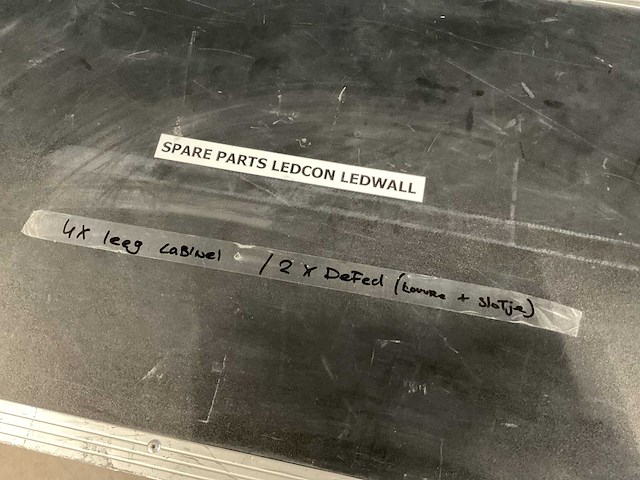 SPARE PARTS LEDCON LEDWALL
4X leeg CABINET / 2 X DeFect (Louvre + SloTje)